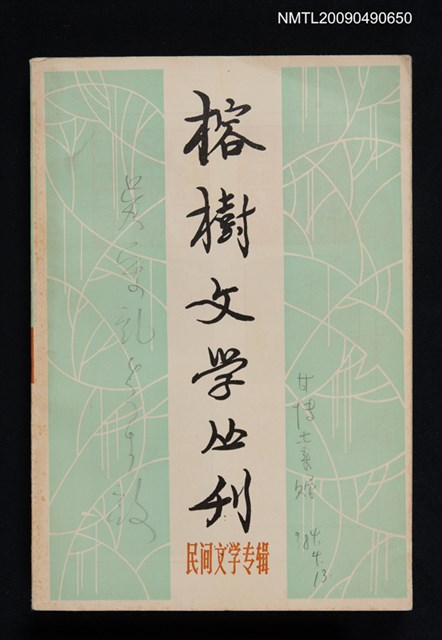 NMTL20090490650
榕樹文学丛刊
民间文学专辑
甘博士來
84.4.13